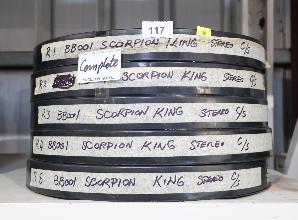 117
R1 BB001 SCORPION KING STEREO C/S
Complete
R2 SCORPION KING STEREO C/S
R3 BB001 SCORPION KING STEREO C/S
R4 BB001 SCORPION KING STEREO C/S
R5 BB001 SCORPION KING STEREO C/S